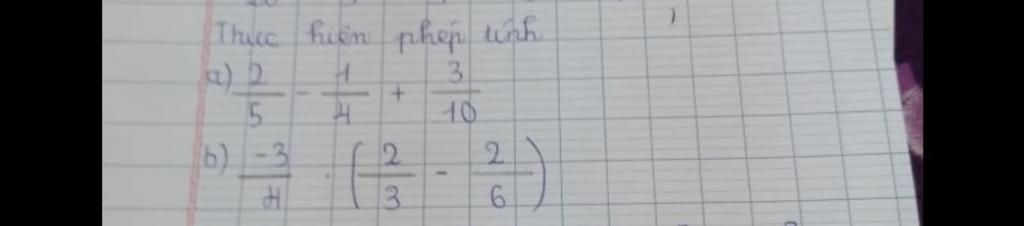 Thực hiện phép tính
a) 2/5 - 1/4 + 3/10
b) -3/4 . (2/3 - 2/6)